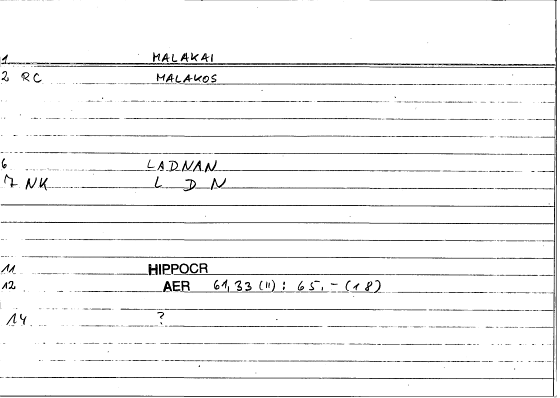 1 MALAKAI
2 RC MALAKOS
6 LADNAN
7 NK L D N
11 HIPPOCR
12 AER 61,33 (11) : 65.-(18)
14 ?